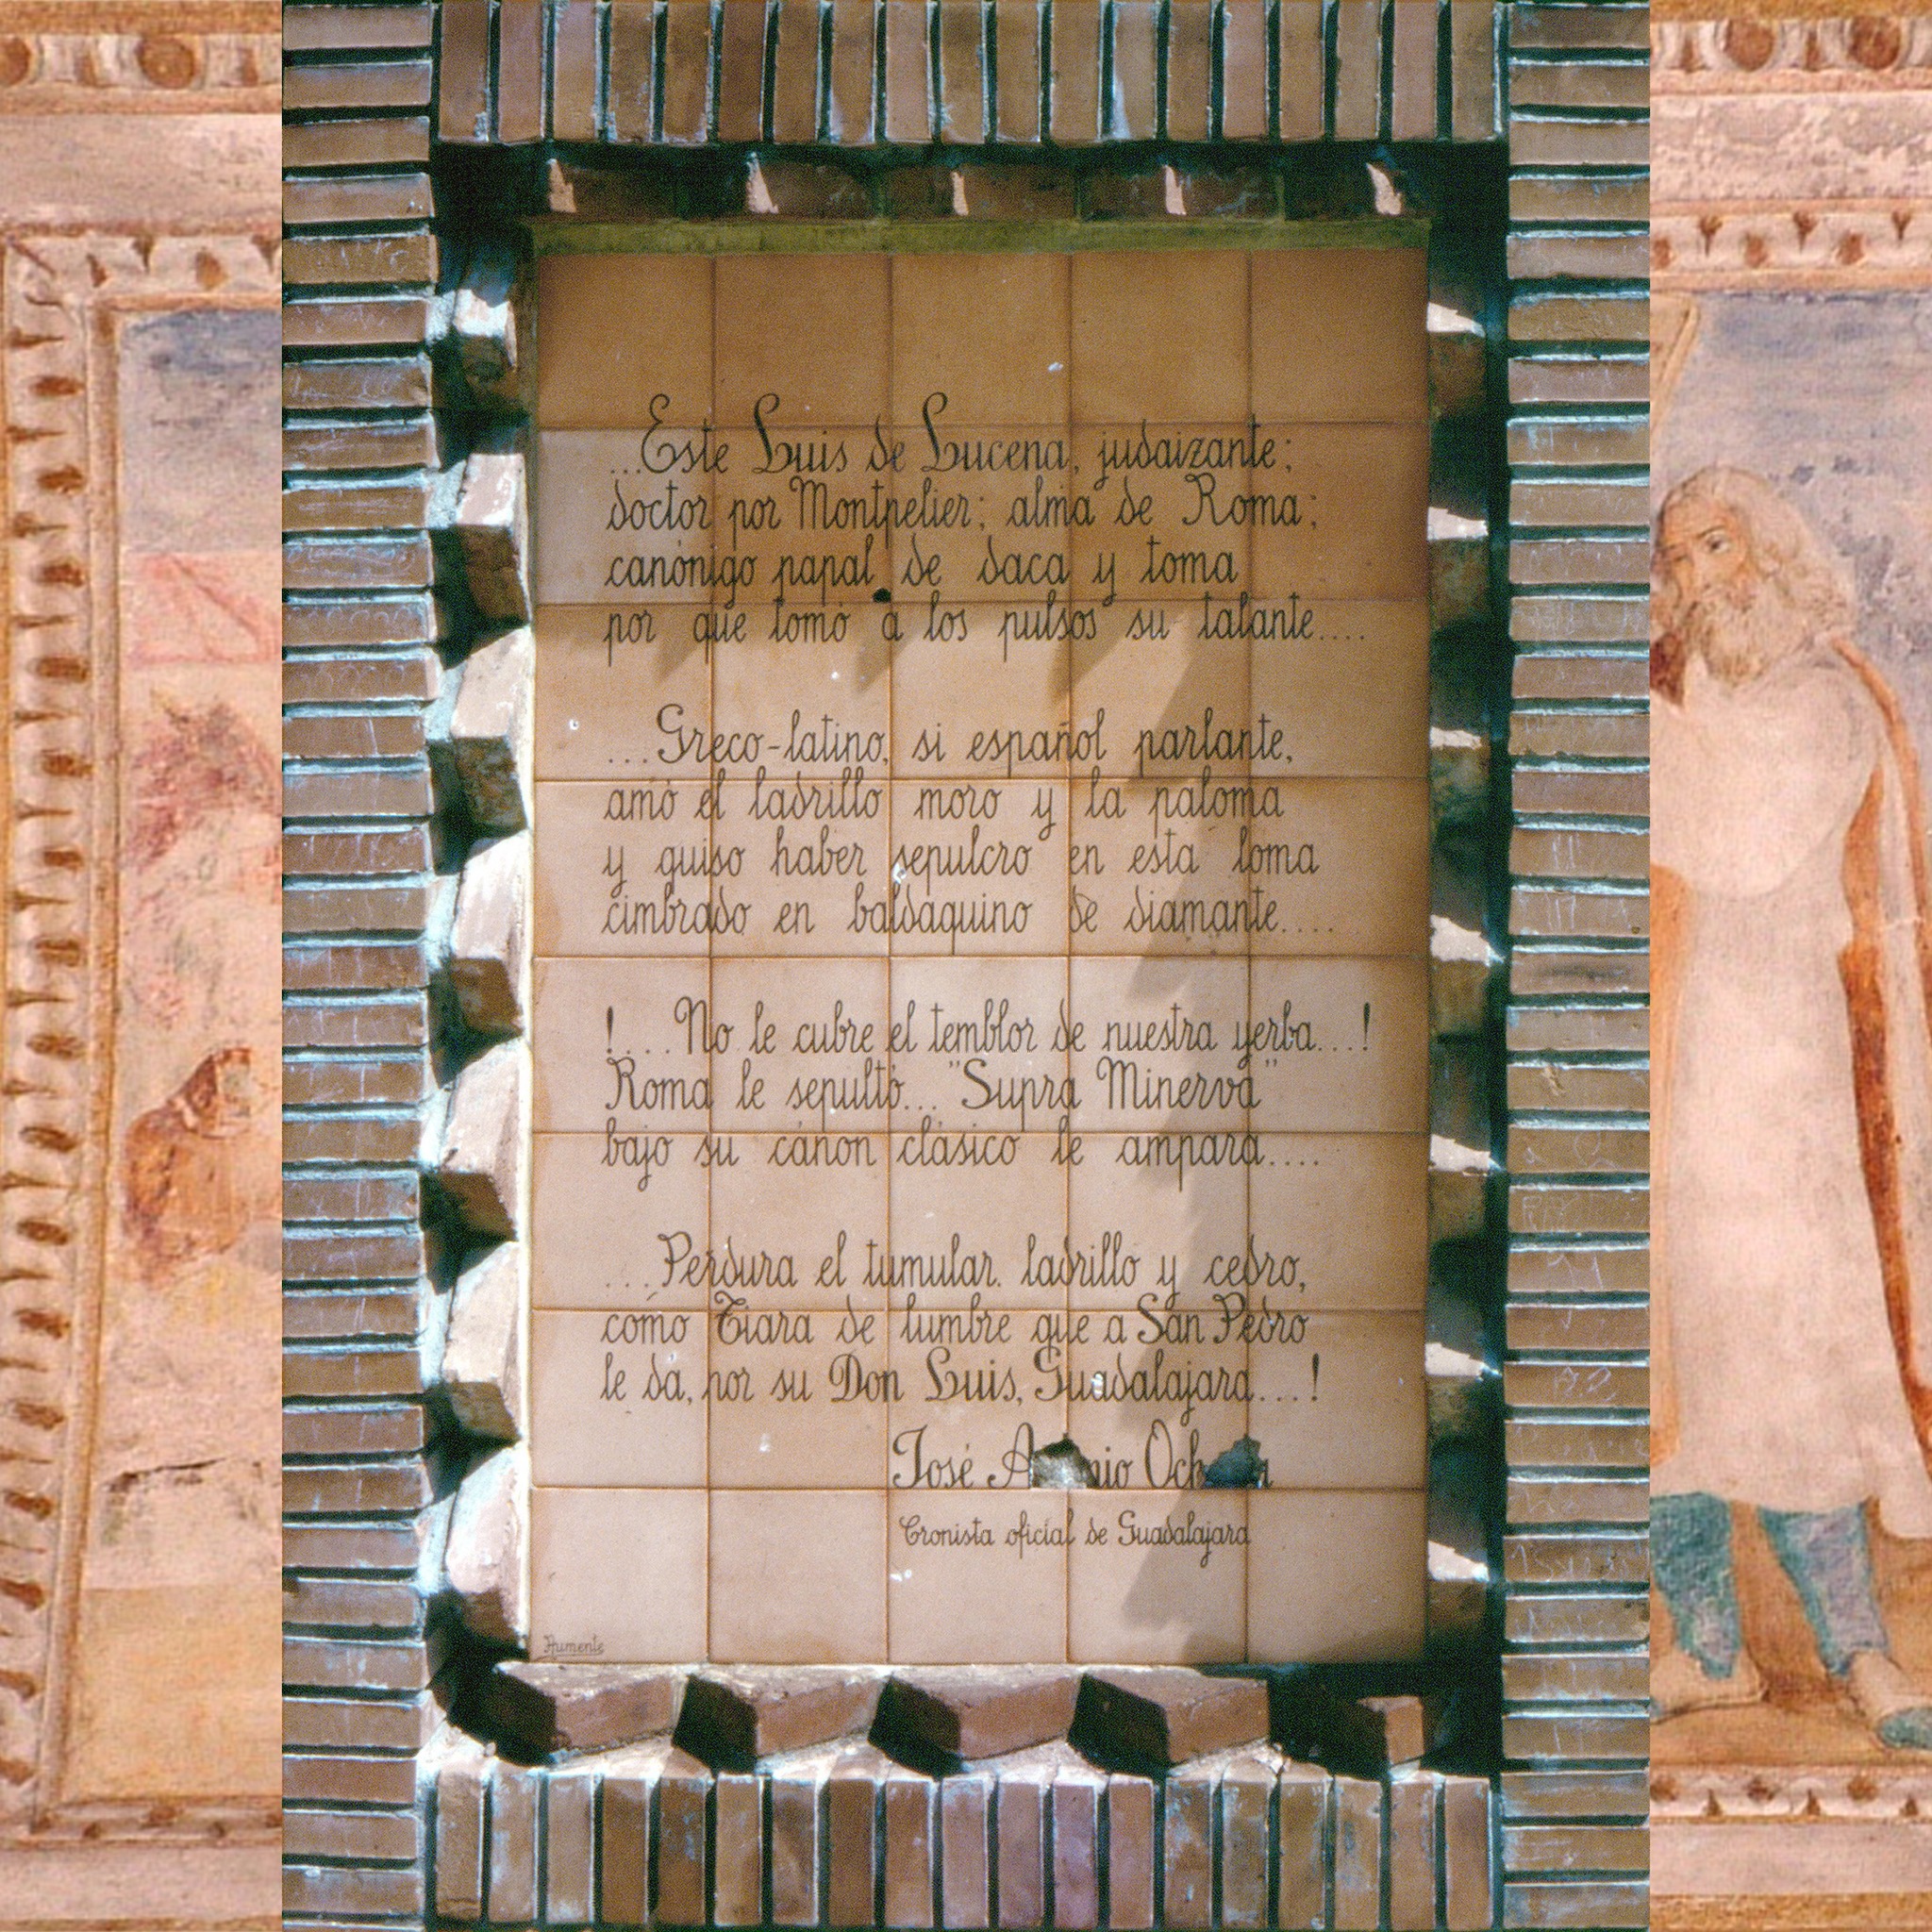 ...Este Luis de Lucena, judaizante;
doctor por Montpelier; alma de Roma;
canónigo papal de daca y toma
por que tomó a los pulsos su talante....
...Greco-latino, si español parlante,
amó el ladrillo moro y la paloma
y quiso haber sepulcro en esta loma
cimbrado en baldaquino de diamante....
!....No le cubre el temblor de nuestra yerba...!
Roma le sepultó... "Supra Minerva"
bajo su cánon clásico le ampara....
...Perdura el tumular. ladrillo y cedro,
como Tiara de lumbre que a San Pedro
le da, por su Don Luis, Guadalajara...!
José A nio Och a
Cronista oficial de Guadalajara
Aumente